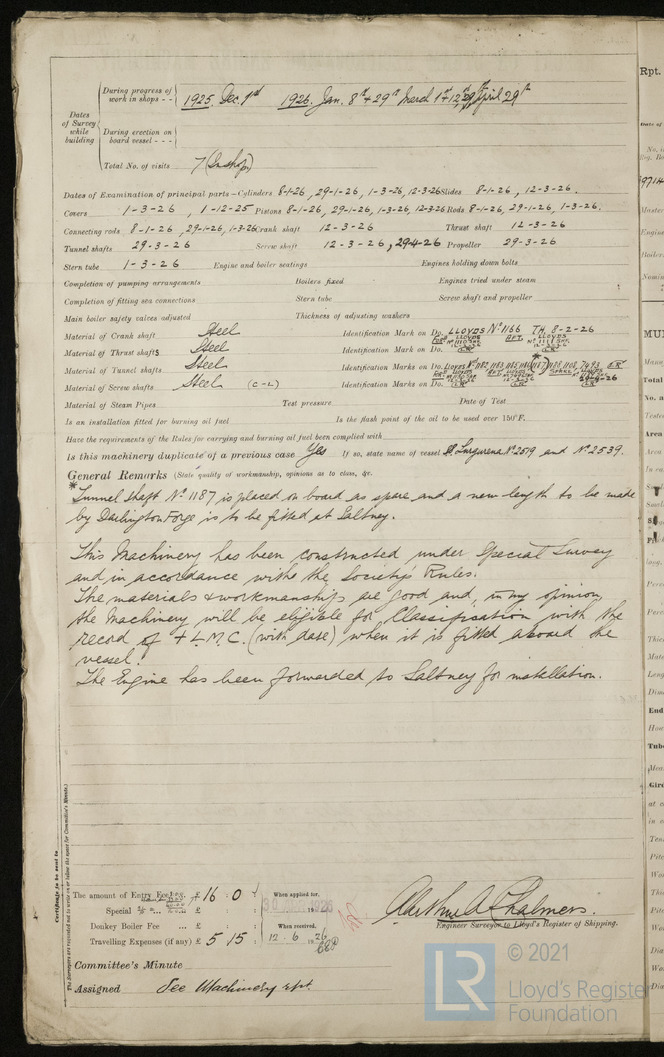 Rpt.
During progress of work in shops - - 1925. Dec. 1st 1926. Jan. 8th + 29th March 1st + 12th April 29th
Dates of Survey while building
During erection on board vessel - - -
Total No. of visits 7 (In shop)
Dates of Examination of principal parts—Cylinders 8-1-26, 29-1-26, 1-3-26, 12-3-26 Slides 8-1-26, 12-3-26.
Covers 1-3-26, 1-12-25 Pistons 8-1-26, 29-1-26, 1-3-26, 12-3-26 Rods 8-1-26, 29-1-26, 1-3-26.
Connecting rods 8-1-26, 29-1-26, 1-3-26 Crank shaft 12-3-26 Thrust shaft 12-3-26
Tunnel shafts 29-3-26 Screw shaft 12-3-26, 29-4-26 Propeller 29-3-26
Stern tube 1-3-26 Engine and boiler seatings Engines holding down bolts
Completion of pumping arrangements Boilers fixed Engines tried under steam
Completion of fitting sea connections Stern tube Screw shaft and propeller
Main boiler safety valves adjusted Thickness of adjusting washers
Material of Crank shaft Steel Identification Mark on Do. LLOYDS No 1166 T.H. 8-2-26
Material of Thrust shafts Steel Identification Mark on Do.
Material of Tunnel shafts Steel Identification Marks on Do.
Material of Screw shafts Steel (C-L) Identification Marks on Do. 29-4-26
Material of Steam Pipes Test pressure Date of Test
Is an installation fitted for burning oil fuel Is the flash point of the oil to be used over 150°F.
Have the requirements of the Rules for carrying and burning oil fuel been complied with
Is this machinery duplicate of a previous case Yes If so, state name of vessel Lurgurena No 2519 and No 2539.
General Remarks (State quality of workmanship, opinions as to class, &c.
* Tunnel shaft No 1187 is placed on board as spare and a new length to be made
by Darlington Forge is to be fitted at Saltney.
This Machinery has been constructed under Special Survey
and in accordance with the Society's Rules.
The materials & workmanship are good and, in my opinion,
the machinery will be eligible for Classification with the
record of + L.M.C. (with date) when it is fitted aboard the
vessel.
The Engine has been forwarded to Saltney for installation.
Certificate to be sent to
The Surveyors are requested not to write on or below the space for Committee's Minute.
The amount of Entry Fee £ 16 . 0 When applied for.
Special £ 1926
Donkey Boiler Fee ... £ When received.
Travelling Expenses (if any) £ 5 15 12.6.1926
Arthur A Chalmers.
Engineer Surveyor to Lloyd's Register of Shipping.
Committee's Minute
Assigned See Machinery rpt.
© 2021
LR
Lloyd's Register
Foundation